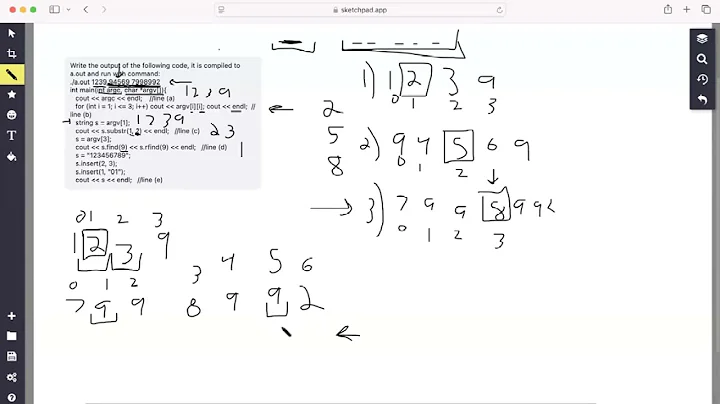 sketchpad.app
Write the output of the following code, it is compiled to
a.out and run with command:
./a.out 1239 94569 7998992
int main(int argc, char *argv[]){
cout << argc << endl; //line (a)
for (int i = 1; i <= 3; i++) cout << argv[i][i]; cout << endl; //
line (b)
string s = argv[1];
cout << s.substr(1, 2) << endl; //line (c)
s = argv[3];
cout << s.find(9) << s.rfind(9) << endl; //line (d)
s = "123456789";
s.insert(2, 3);
s.insert(1, "01");
cout << s << endl; //line (e)
12 , 9
1239
23
1
2
5
8
1) 1 2 3 9
0 1 2 3
2) 9 4 5 6 9
0 1 2
3) 7 9 9 8 9 9 2
0 1 2 3
0 1 2 3
1 2 3 9
0 1 2 3 4 5 6
7 9 9 8 9 9 2